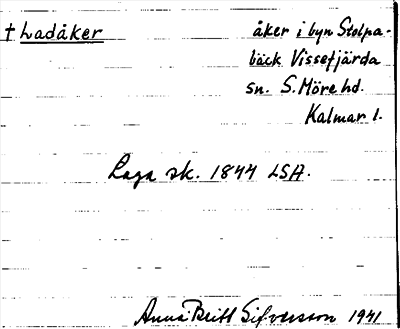 † Ladåker
åker i byn Stolpa-
bäck Vissefjärda
sn. S. Möre hd.
Kalmar l.
Laga sk. 1844 LSA.
Anna-Britt Sifversson 1941